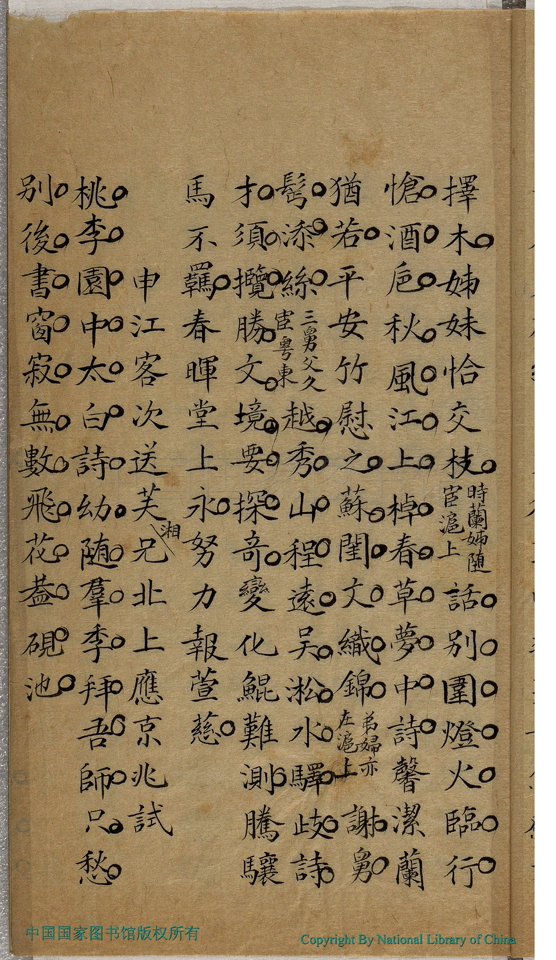 擇木姊妹恰交枝時蘭姊随宦滬上話别圍燈火臨行
愴酒巵秋風江上棹春草夢中詩馨潔蘭
猶若平安竹慰之蘇閨文織錦弟婦亦在滬上謝舅
髩添絲三舅父久宦粤東越秀山程遠吴淞水驛歧詩
才須攬勝文境要探奇變化鯤難測騰驤
馬不羈春暉堂上永努力報萱慈
申江客次送芙湘兄北上應京兆試
桃李園中太白詩幼随羣季拜吾師只愁
别後書窗寂無數飛花葢硯池
中国国家图书馆版权所有
Copyright By National Library of China